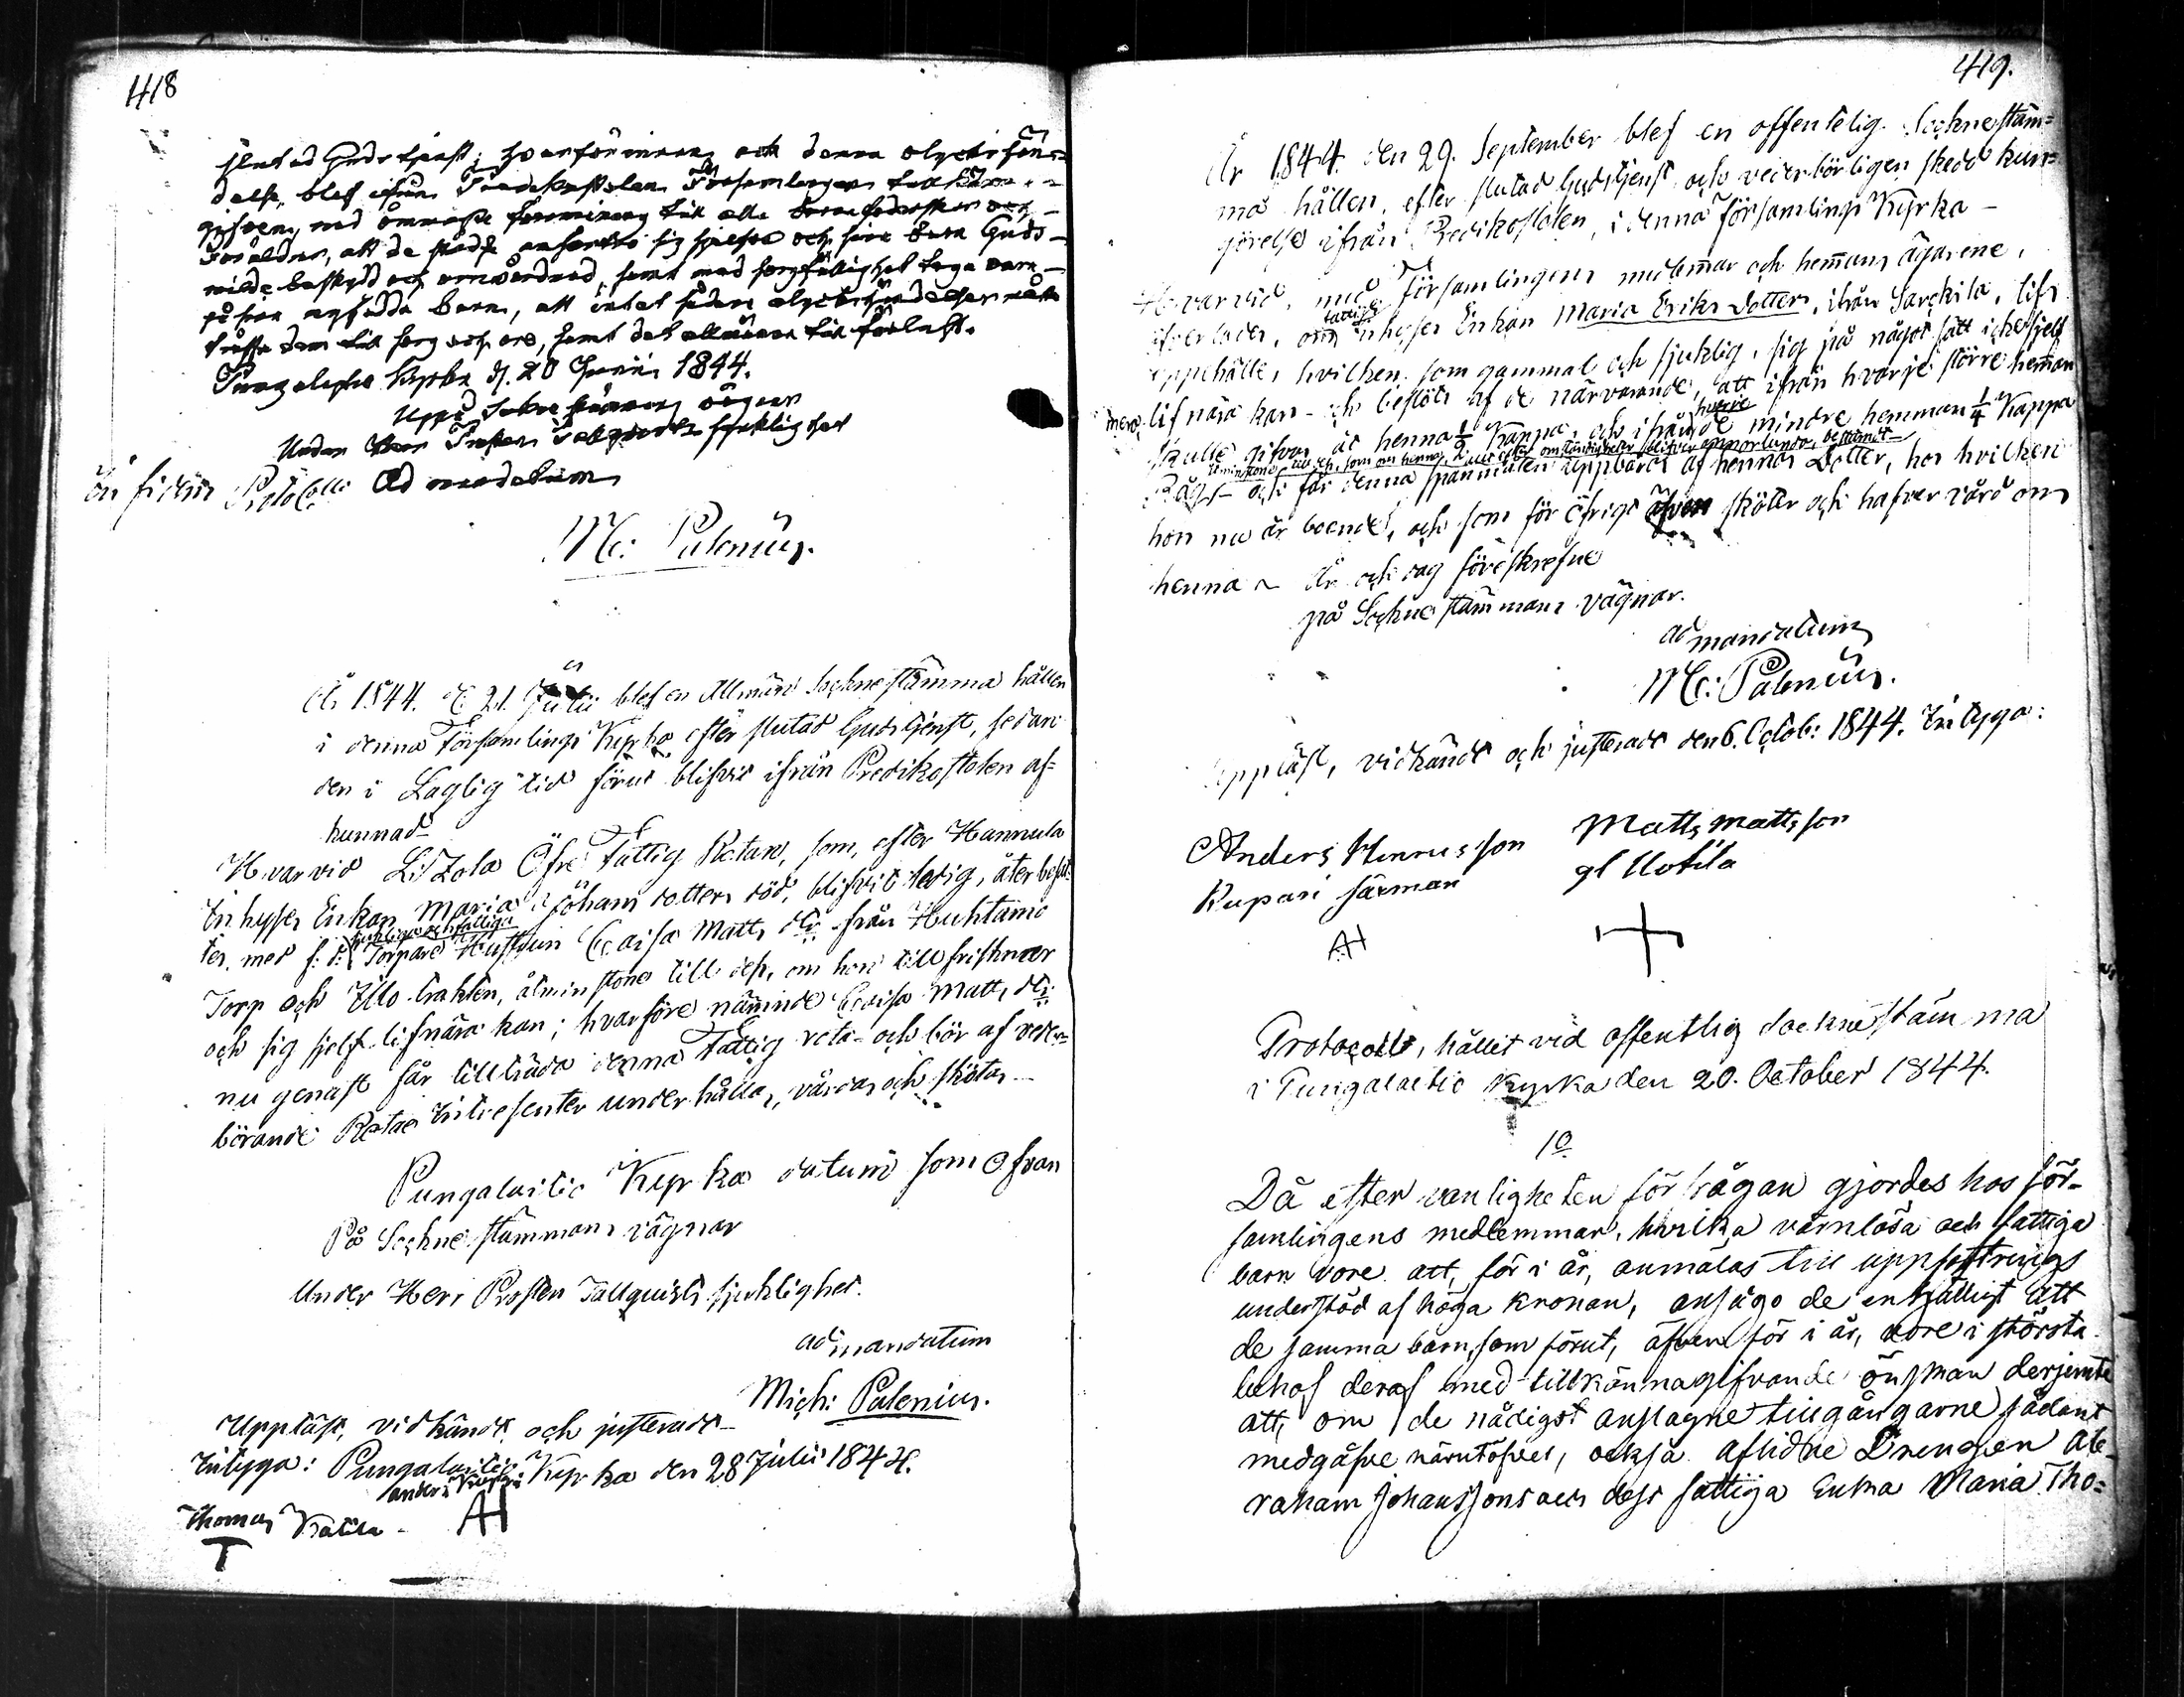 418
slutad Gudstjenst; hvarförinnan och denna olyckshän-
delse, blef ifrån Predikostolen Församlingen tillkänna-
gifven, med ömmaste förmaning till alla barnaföderskor och
Föräldrar, att de måtte anförtro sig sjelfva och sina barn Guds
milda beskydd och omvårdnad, samt med sorgfällighet taga vara
på sina nyfödda barn, att intet sådane olyckshändelser måtte
träffa dem till sorg och ve, samt det allmänna till förlust.
Pungalaitio Kyrka d. 20 Junii 1844.
Uppå Sokne stämmans vägnar
Under Herr Prosten Tallqvists sjuklighet
In fidem Protocolli Ad mandatum
Mc: Palenius.
År 1844. d. 21. Julii blef en Allmän Sockne stämma hållen
i denna Församlings Kyrka efter slutad Gudstjenst, sedan
den i Laglig tid förut blifvit ifrån Predikostolen af-
kunnad-
Hvarvid Litzola Öfre Fattig Rotan, som, efter Hannula
Inhyses Enkan Maria Johans dotters död, blifvit ledig, återbesat-
tes med f: d: sjukliga och fattiga Torpare Hustrun Caisa Matts dtr från Huhtamo
Torp och Illo trakten, åtminstone till dess, om hon tillfrisknar
och sig sjelf lifnära kan; hvarföre nämnde Caisa Matts dtr
nu genast får tillträda denna Fattig rota- och bör af veder-
börande Rotae Intressenter underhållas, vårdas och skötas-
Pungalaitio Kyrka datum som ofvan
På Sockne stämmans vägnar
Under Herr Prosten Tallquists sjuklighet.
ad mandatum
Mich: Palenius.
Uppläst, vidkändt och justeradt-
Intyga: Pungalaitio Kyrka den 28 Julii 1844.
Anders
Thomas Katila - AH
T
419.
År 1844. den 29. September blef en offentelig Socknestäm-
ma hållen, efter slutad Gudstjenst och vederbörligen skedd kun-
görelse ifrån Predikostolen, i denna Församlings Kyrka -
Hvarvid, med Församlingens medlemmar och hemmans ägarene,
öfverlades, om fattiga inhyses Enkan Maria Eriks dotters, ifrån Sarkila, lifs
uppehälle, hvilken som gammal och sjuklig, sig på något sätt icke sjelf
mera lifnära kan - och beslöts af de närvarande, att ifrån hvarje större hemman
skulle gifvas åt henna 1/2 Kappa, och ifrån hvarje de mindre hemman 1/4 Kappa
Råg - och får denna spannmålen uppbäras af hennas Dotter, hos hvilken
hon nu är boende, och som för öfrigt äfven sköter och hafver vård om
henna ~ År och dag föreskrefne
på Sockne stämmans vägnar.
ad mandatum
Mc: Palenius.
Uppläst, vidkändt och justeradt den 6. Octob: 1844. Intyga:
Anders Henricsson Matts Mattsson
Kupari Särman gl Uotila
AH
Protocoll, hållit vid offentlig Socknestämma
i Pungalaitio Kyrka den 20. October 1844.
1o
Då efter vanligheten förfrågan gjordes hos för-
samlingens medlemmar, hvilka värnlösa och fattiga
barn vore att, för i år, anmälas till uppfostrings
understöd af höga Kronan, ansågo de enhälligt att
de samma barn, som förut, äfven för i år, vore i största
behof deraf med tillkännagifvande önskan derjemte
att, om de nådigst anslagne tillgångarne sådant
medgåfve närutöfver, också aflidne Drengen Ab-
raham Johanssons och dess fattiga Enka Maria Tho-